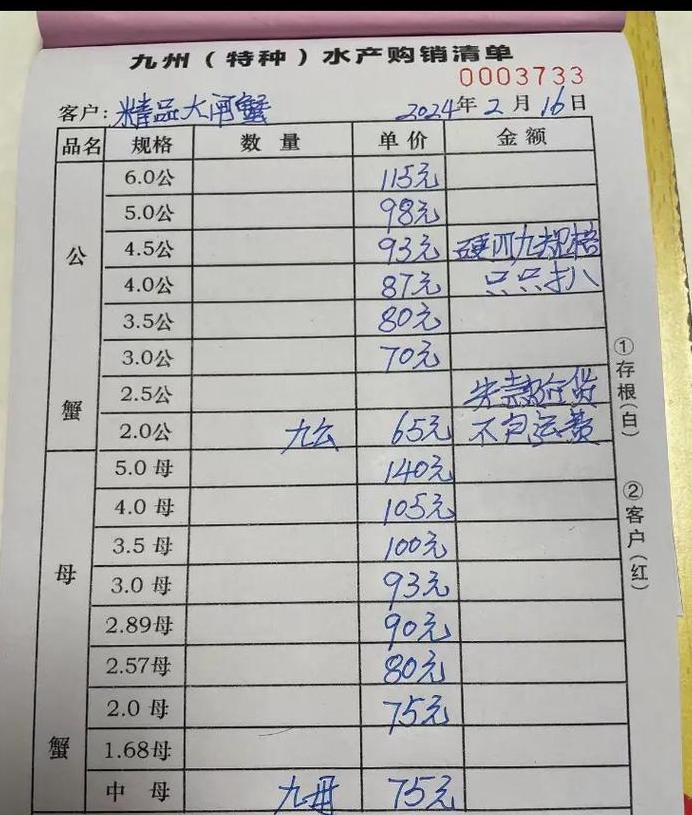 九州（特种）水产购销清单
0003733
客户: 精品大闸蟹 2024年2月16日
品名 规格 数量 单价 金额
公蟹
6.0公 115元
5.0公 98元
4.5公 93元 硬四九规格
4.0公 87元 只只扒
3.5公 80元
3.0公 70元
2.5公
2.0公 九公 65元 不包运费
母蟹
5.0母 140元
4.0母 105元
3.5母 100元
3.0母 93元
2.89母 90元
2.57母 80元
2.0母 75元
1.68母
中母 九母 75元
①存根(白)
②客户(红)